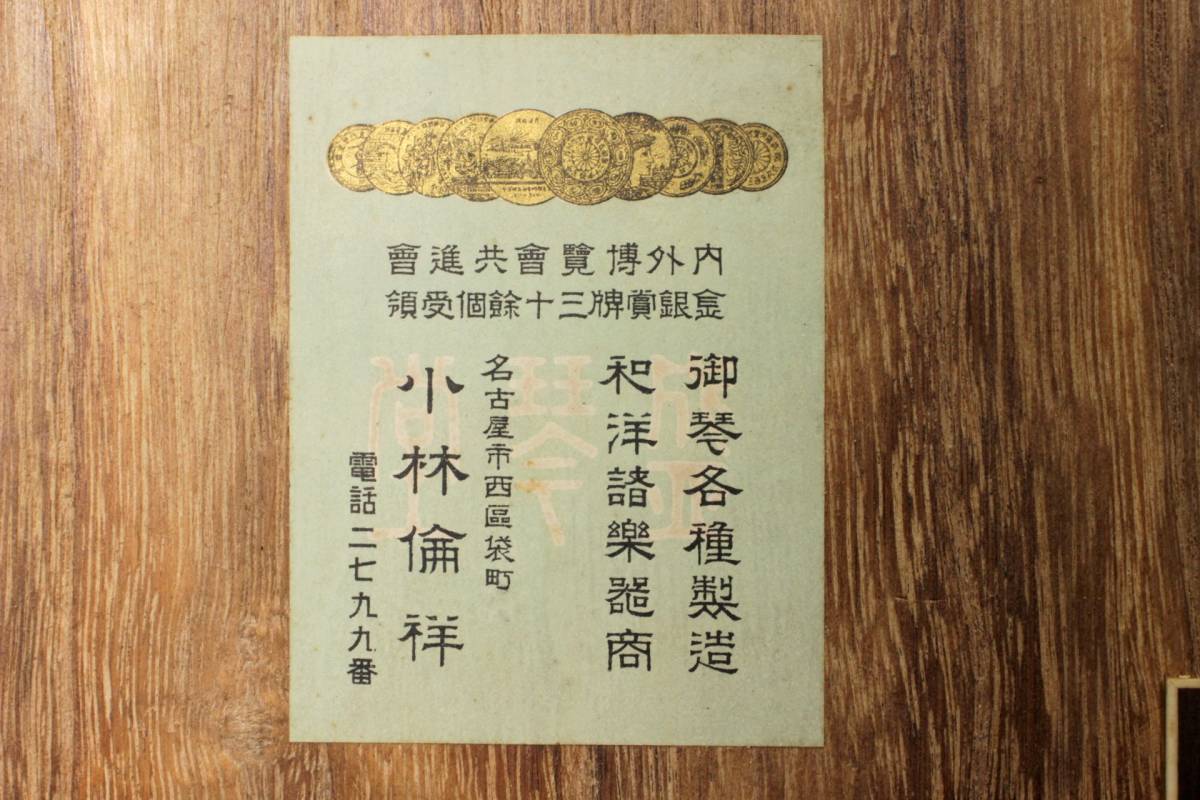 内外博覽會共進會
金銀賞牌三十餘個受領
御琴各種製造
和洋諸樂器商
名古屋市西區袋町
小林倫祥
電話二七九九番